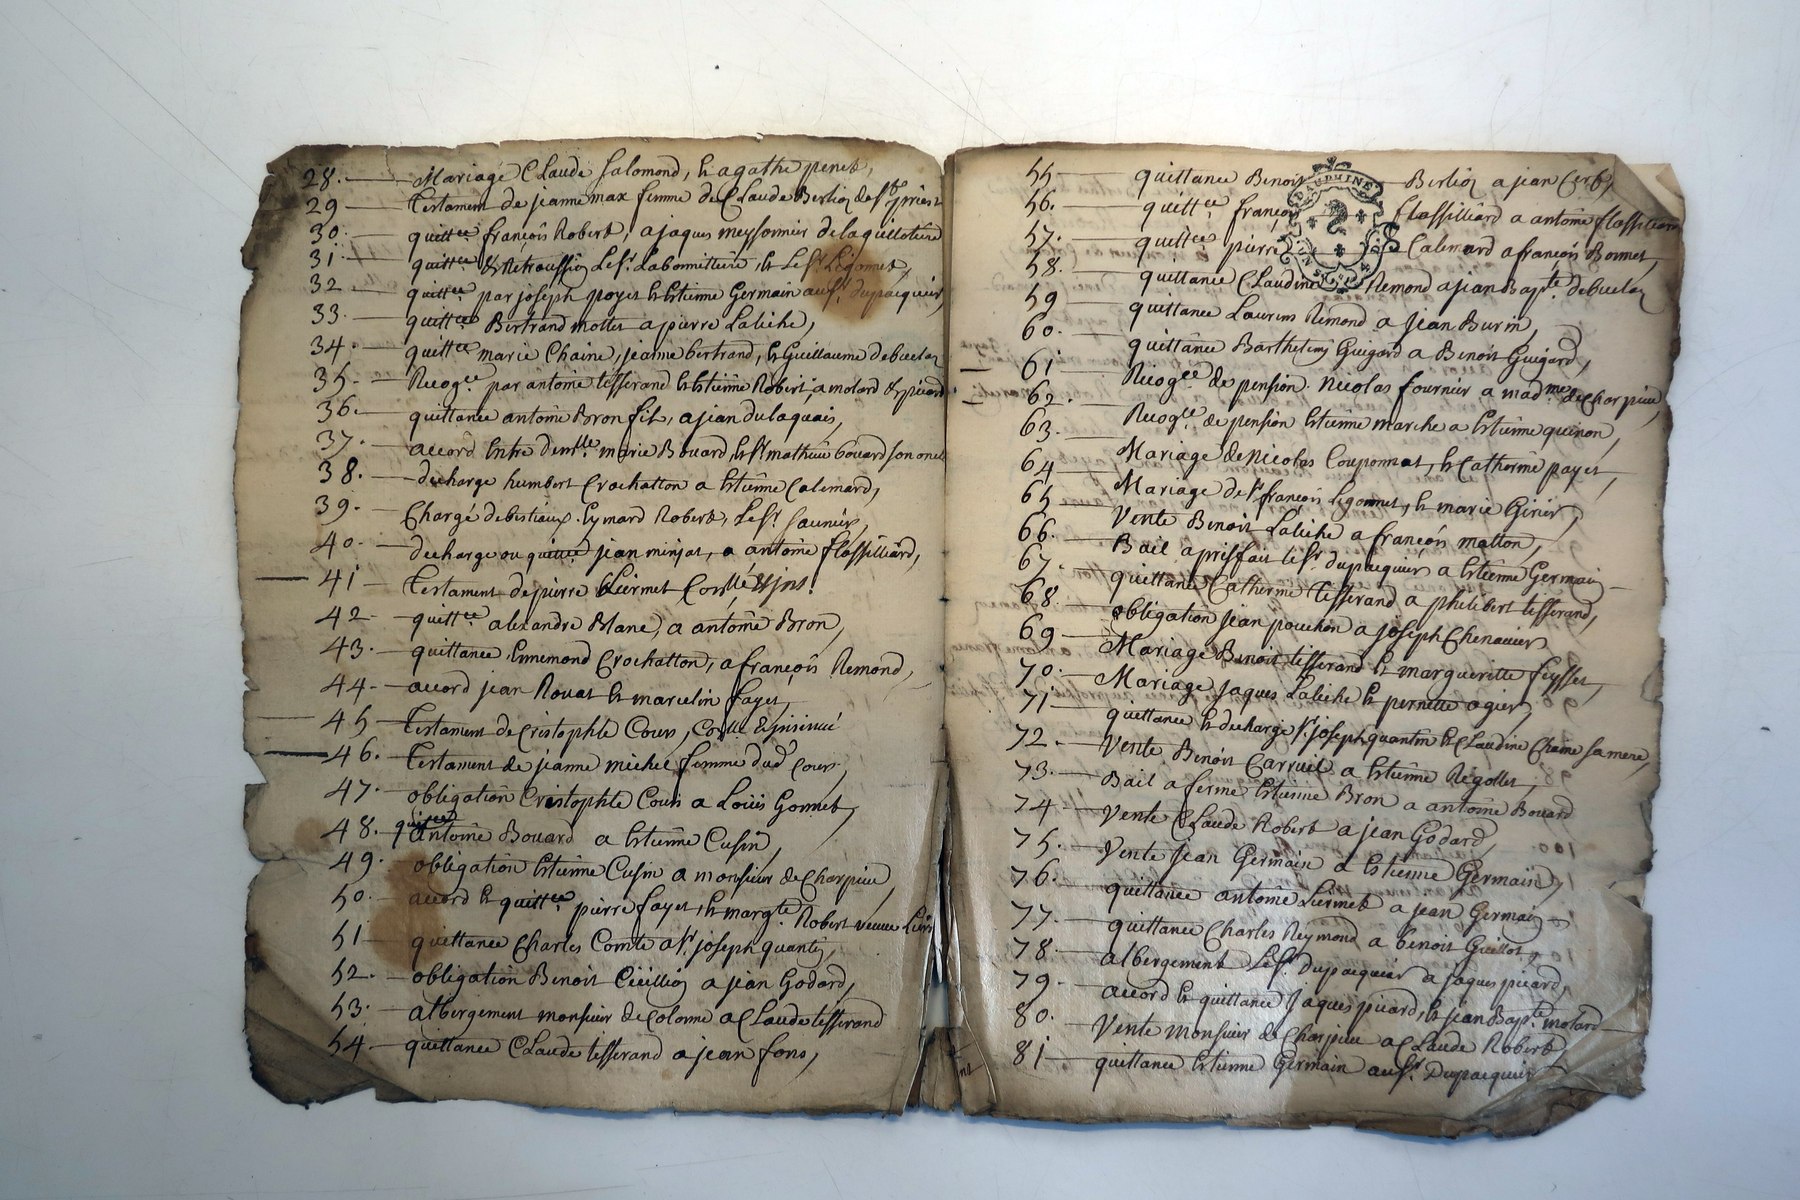 28. Mariage Claude Salomond, et agathe penet,
29 Testament de jeanne max femme de Claude Berlioz de St priest
30. quittce françois Robert, a jaques meyssonnier de la guillotiere
31. quittce & Retroussion le Sr. Labonnittiere, et le Sr. Legonnet,
32 quittce par joseph poyet et Estienne Germain au Sr. dupacquier,
33. quittce Bertrand mottet a pierre Labiche,
34. quittce marie Chaine, jeanne bertrand, et Guillaume debuclon
35. Recogce par antoine tisserand et Estienne Robert, a motard & picard
36. quittance antoine Bron fils, a jean du laquais,
37. accord Entre demlle marie Bouard, et Sr mathieu bouard son oncle
38. decharge humbert Crochatton a Estienne Calemard,
39. Chargé de bestiaux Eymard Robert, le Sr. Saunier,
40. decharge ou quittce jean minjat, a antoine flossilliard,
41 Testament de pierre Liermet
42 quittce alexandre Blanc, a antoine Bron,
43. quittance Ennemond Crochatton, a françois Remond,
44. accord jean Rouat et marcelin fayet,
45 Testament de Cristophle Cours, & jnsinué
46. Testament de jeanne michel femme dud Cours,
47. obligation Cristophle Cours a Loüis Gonnet,
48. quittce antoine Bouard a Estienne Cusin,
49. obligation Estienne Cusin a monsieur de Charpieu,
50. accord et quittce pierre fayet, et margte. Robert veuve
51 quittance Charles Comte a Sr. joseph quantin,
52. obligation Benoit a jean Godard,
53. albergement monsieur de Colonne a Claude tisserand
54. quittance Claude tisserand a jean fons,
55 quittance Benoit Berlioz a jean Cerf,
DAUPHINE
56. quittce françois flossilliard a antoine flossilliard
57. quittce pierre Calemard a françois Bonnet,
58. quittance Claudine Remond a jean Bapte. debuclon
59 quittance Laurens Remond a jean Burin,
60. quittance Barthelemy Guigard a Benoit Guigard,
61 Recogce de pension Nicolas fournier a madme de Charpieu,
62. Recogce de pension Estienne marche a Estienne quinon,
63. Mariage de Nicolas Couponnat, et Catherine payet,
64 Mariage de Sr françois Legonnet, et marie Girier,
65 Vente Benoit Labiche a françois matton,
66. Bail a prisfait le Sr. dupacquier a Estienne Germain
67. quittance Catherine tisserand a philibert tisserand,
68. obligation jean pouchon a joseph Chenavier
69 Mariage Benoit tisserand et marguerite feysset,
70. Mariage jaques Labiche et pernette agier,
71 quittance et decharge Sr. joseph quantin et Claudine Chaine sa mere,
72. Vente Benoit Carruel a Estienne Regollet,
73. Bail a ferme Estienne Bron a antoine Bouard
74 Vente Claude Robert a jean Godard,
75. Vente jean Germain a Estienne Germain,
76. quittance antoine Liermet a jean Germain
77. quittance Charles Reymond a benoit Guillot,
78. albergement le Sr. dupacquier a jaques picard,
79. accord et quittance jaques picard, et jean Bapte. motard
80. Vente monsieur de Charpieu a Claude Robert,
81 quittance Estienne Germain au Sr. Dupacquier